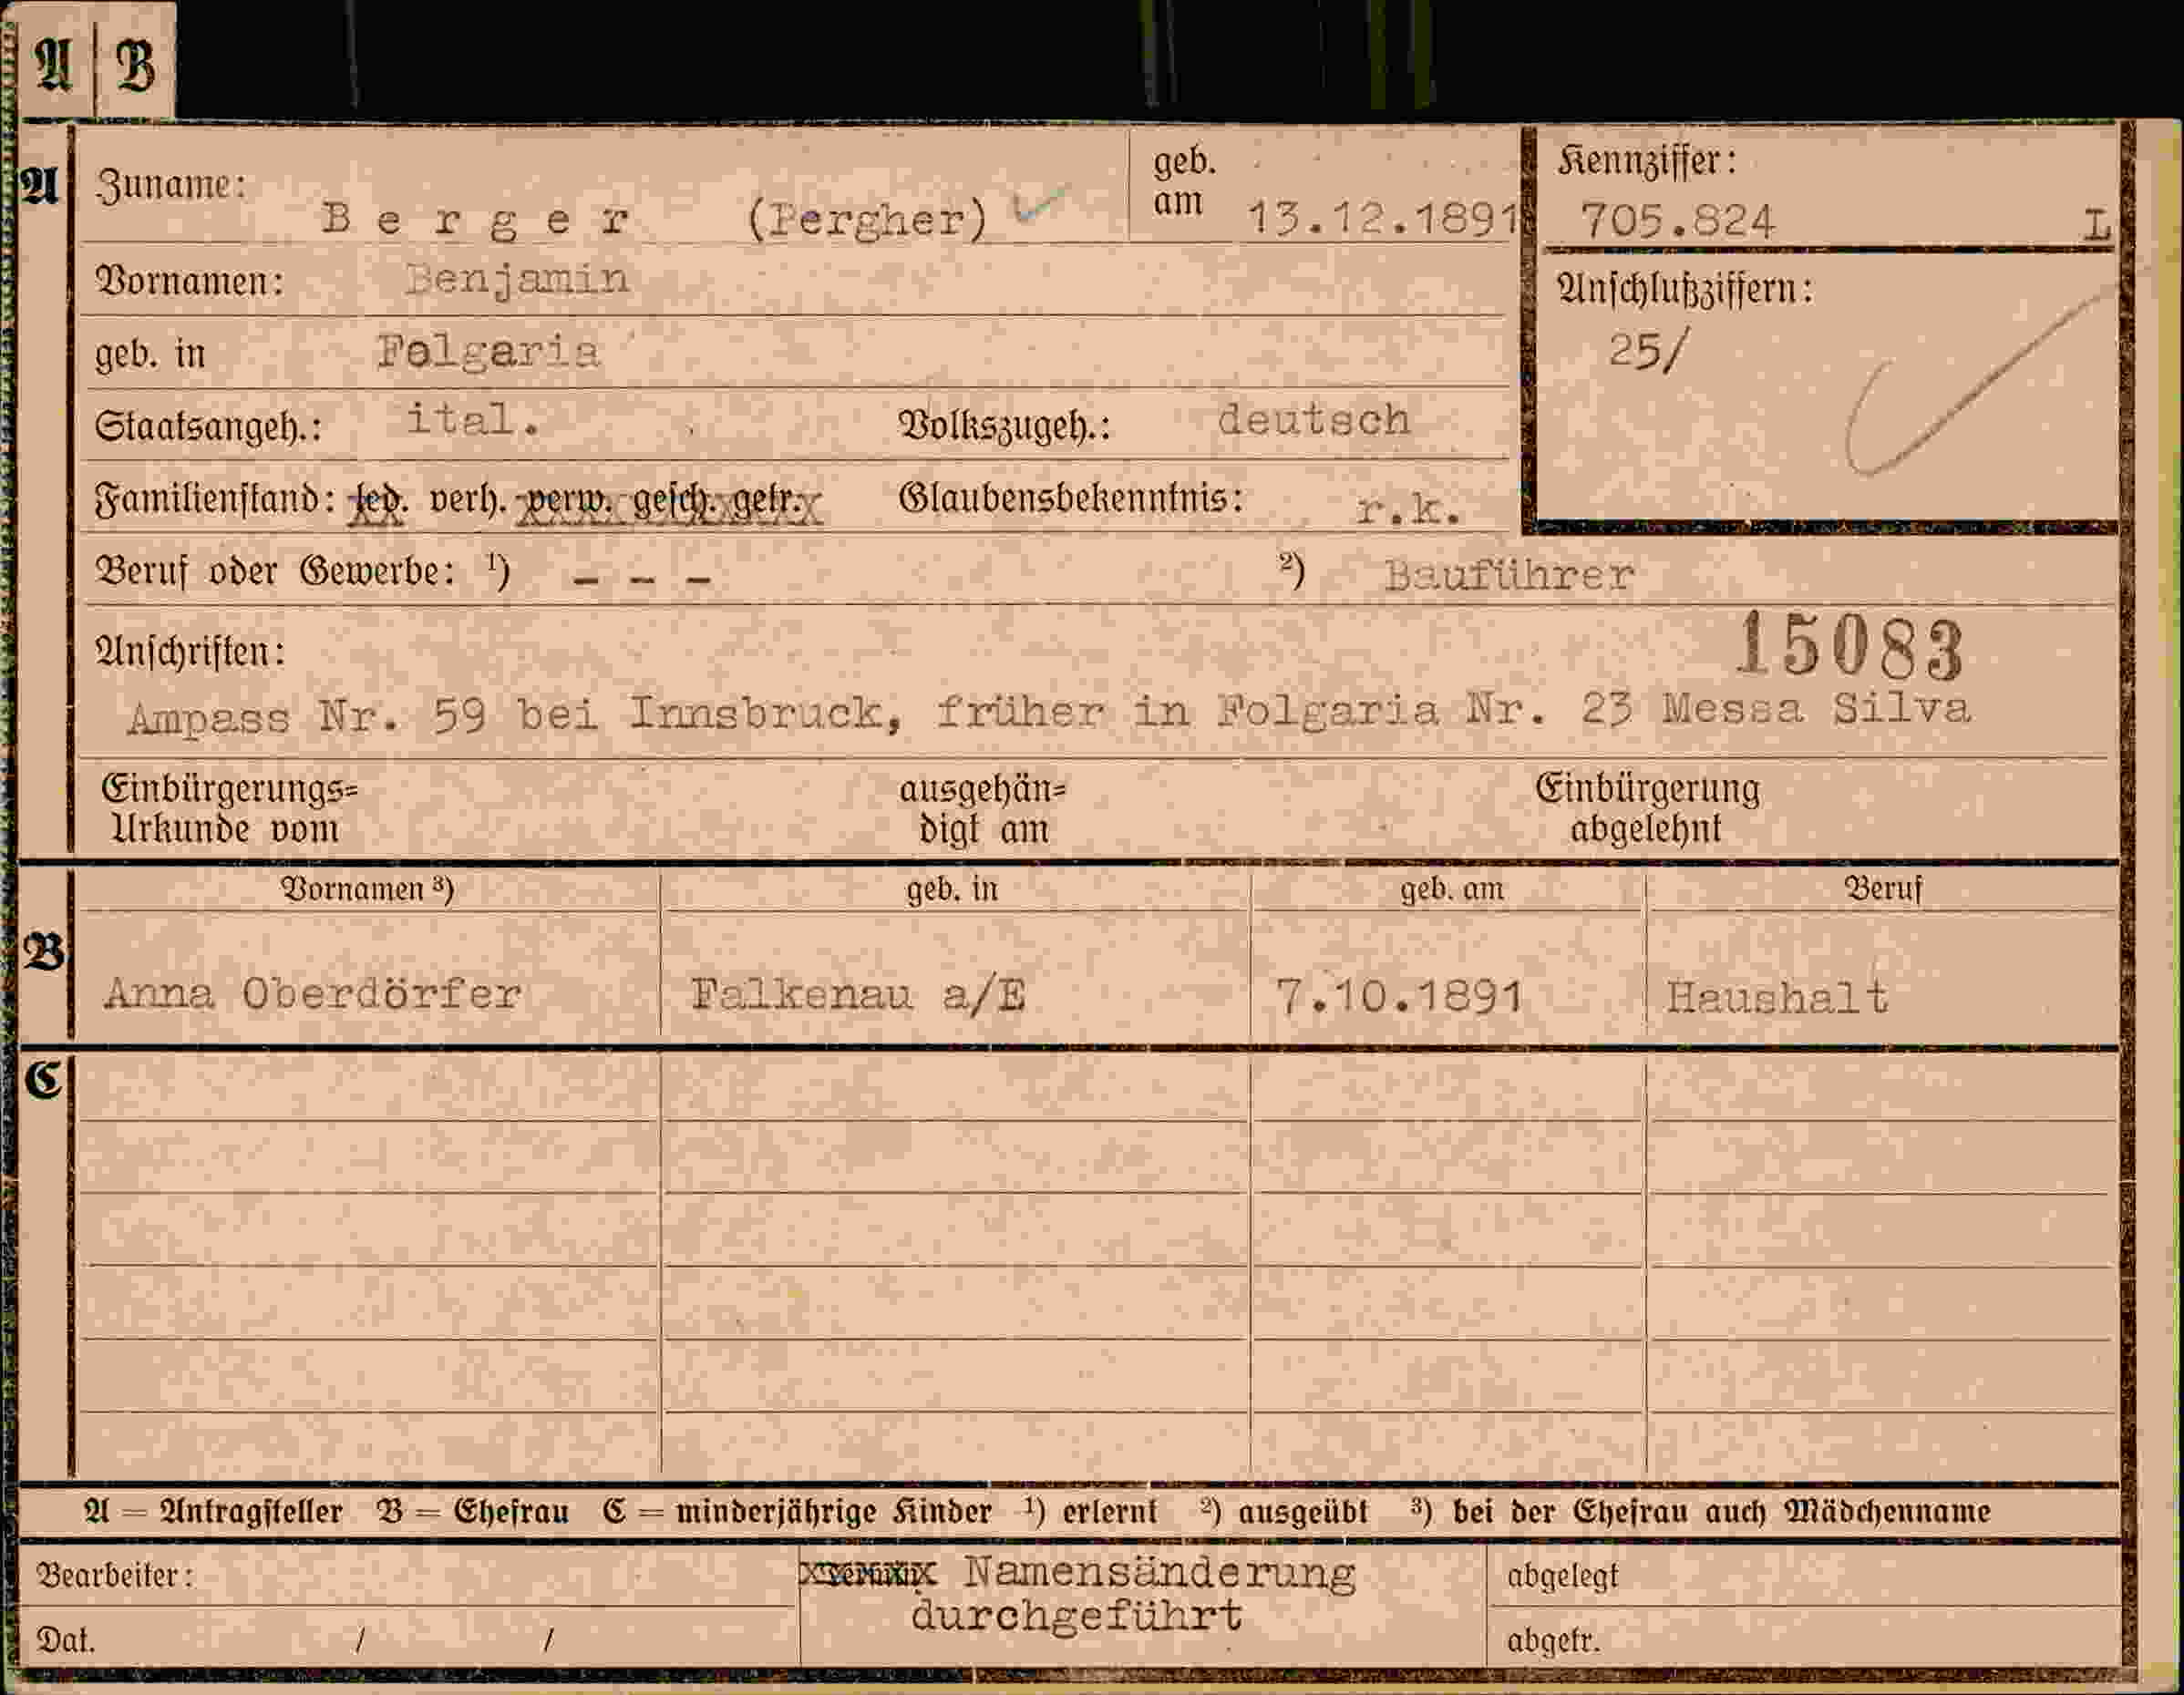 A | B
A
Zuname: B e r g e r (Pergher)
geb. am 13.12.1891
Kennziffer: 705.824 L
Vornamen: Benjamin
Anschlußziffern: 25/
geb. in Folgaria
Staatsangeh.: ital. Volkszugeh.: deutsch
Familienstand: led. verh. verw. gesch. getr. Glaubensbekenntnis: r.k.
Beruf oder Gewerbe: ¹) – – – ²) Bauführer
Anschriften: 15083
Ampass Nr. 59 bei Innsbruck, früher in Folgaria Nr. 23 Messa Silva
Einbürgerungs= ausgehän= Einbürgerung
Urkunde vom digt am abgelehnt
B
Vornamen ³) geb. in geb. am Beruf
Anna Oberdörfer Falkenau a/E 7.10.1891 Haushalt
C
A = Antragsteller B = Ehefrau C = minderjährige Kinder ¹) erlernt ²) ausgeübt ³) bei der Ehefrau auch Mädchenname
Bearbeiter: Namensänderung abgelegt
durchgeführt
Dat. / / abgetr.